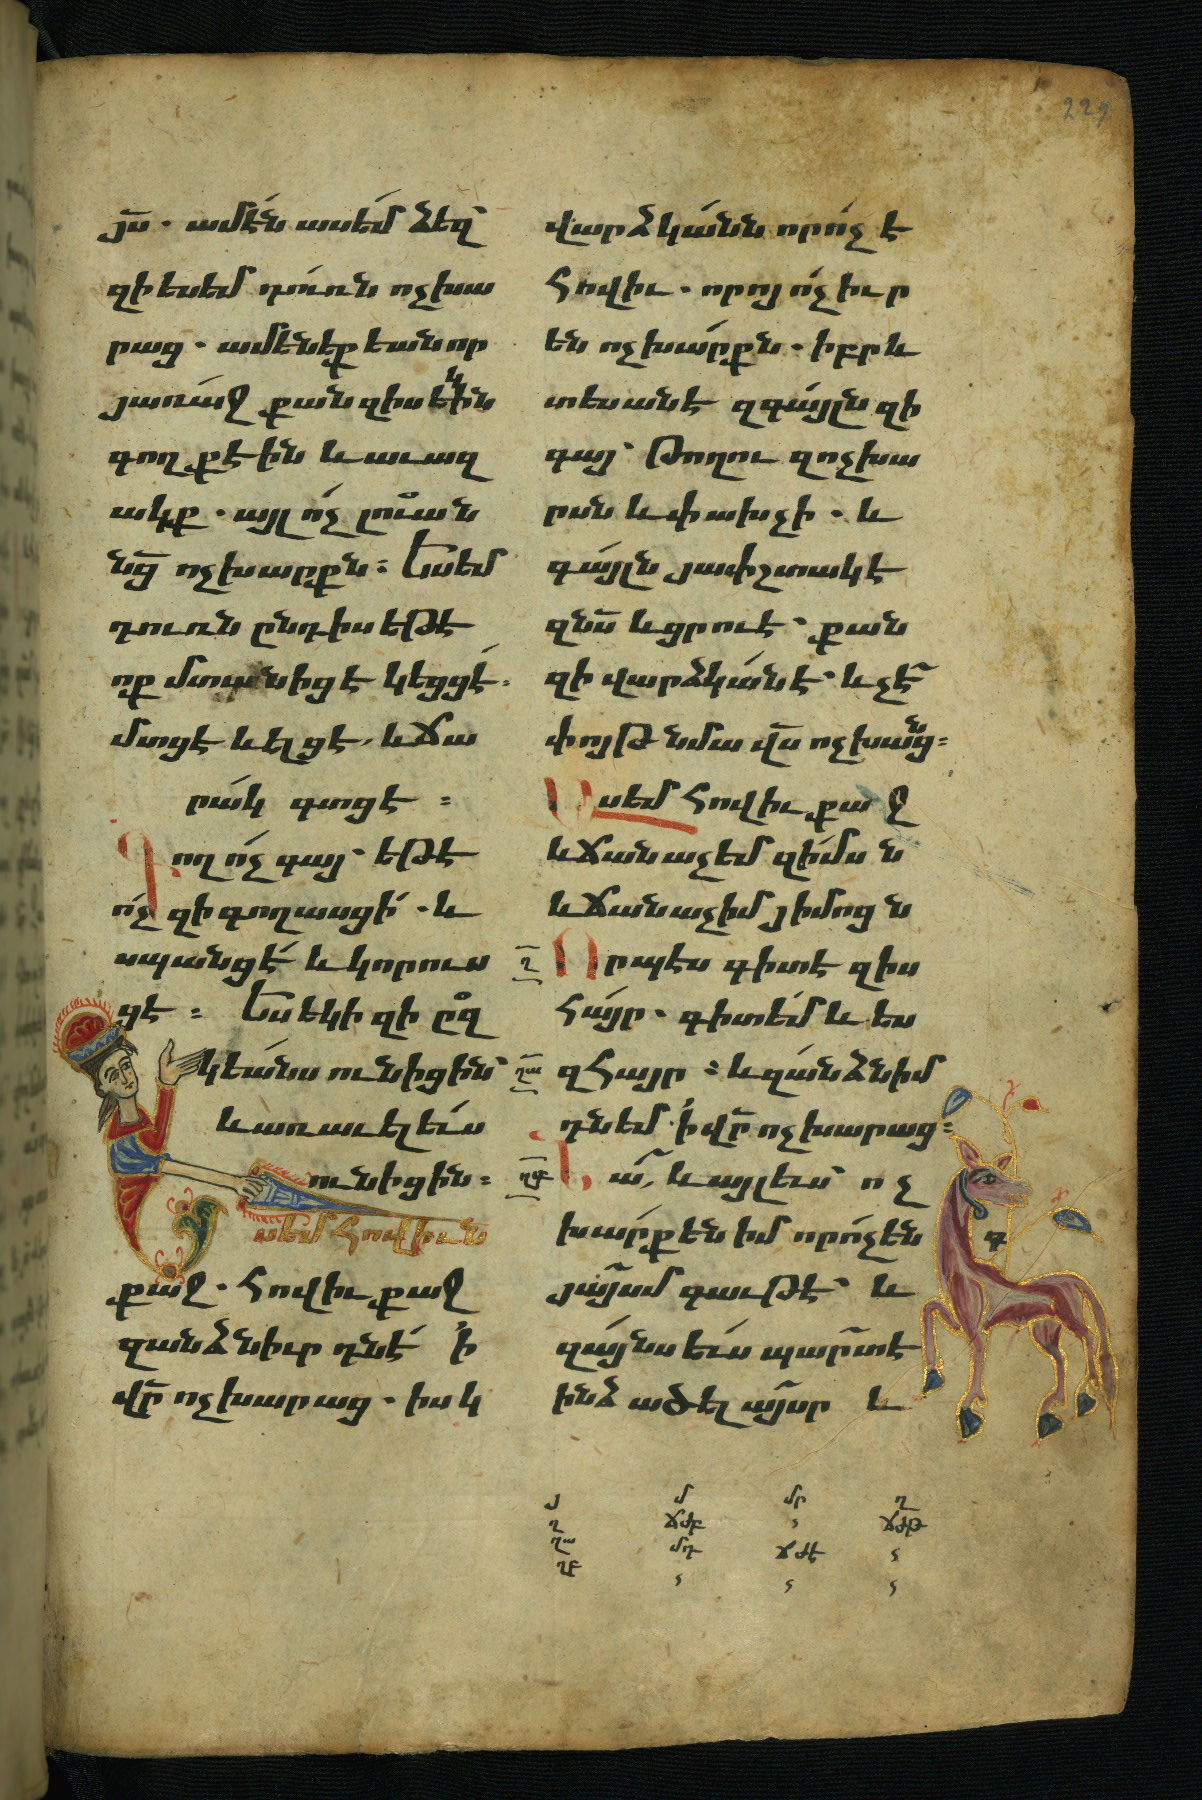 229
յս̄ . ամէն ասեմ ձեզ՝
զի ես եմ դուռն ոչխա
րաց . ամենեքեան որ
յառաջ քան զիս եկին
գողք էին և աւազ
ակք . այլ ոչ լուան
նց̄ ոչխարքն : Ես եմ
դուռն ընդ իս եթէ
ոք մտանիցէ կեցցէ .
մտցէ և ելցէ , և ճա
րակ գտցէ :
Գող ոչ գայ՝ եթէ
ոչ զի գողասցի . և
սպանցէ և կորուս
ցէ : Ես եկի զի ըզ
կեանս ունիցին՝
և առաւել ևս
ունիցին :
սեմ Հովիւն
քաջ . Հովիւ քաջ
զանձն իւր դնէ ի
վր̄ ոչխարաց . իսկ
վարձկանն որ ոչ է
Հովիւ . որոյ ոչ իւր
են ոչխարքն . իբրև
տեսանէ զգայլն զի
գայ՝ թողու զոչխա
րսն և փախչի . և
գայլն յափշտակէ
զնս̄ և ցրուէ՝ քան
զի վարձկան է՝ և չէ
փոյթ նմա վս̄ ոչխանց :
Ես եմ Հովիւ քաջ
և ճանաչեմ զիմսն
և ճանաչիմ յիմոցն
Ղ Որպէս գիտէ զիս
Հայր . գիտեմ և ես
ՂԱ զՀայր : և զանձն իմ
դնեմ ի վր̄ ոչխարաց :
ՂԲ Եւ ա̄ , և այլ ևս՝ ոչ
խարք են իմ որ ոչ են
յայսմ գաւթէ՝ և
զայնս ևս պարտ է
ինձ ածել այսր և
գ
յ մ մր ղ
ղ ճժբ ՟ ճժթ
ղա մդ ճժէ ՟
ղբ ՟ ՟ ՟